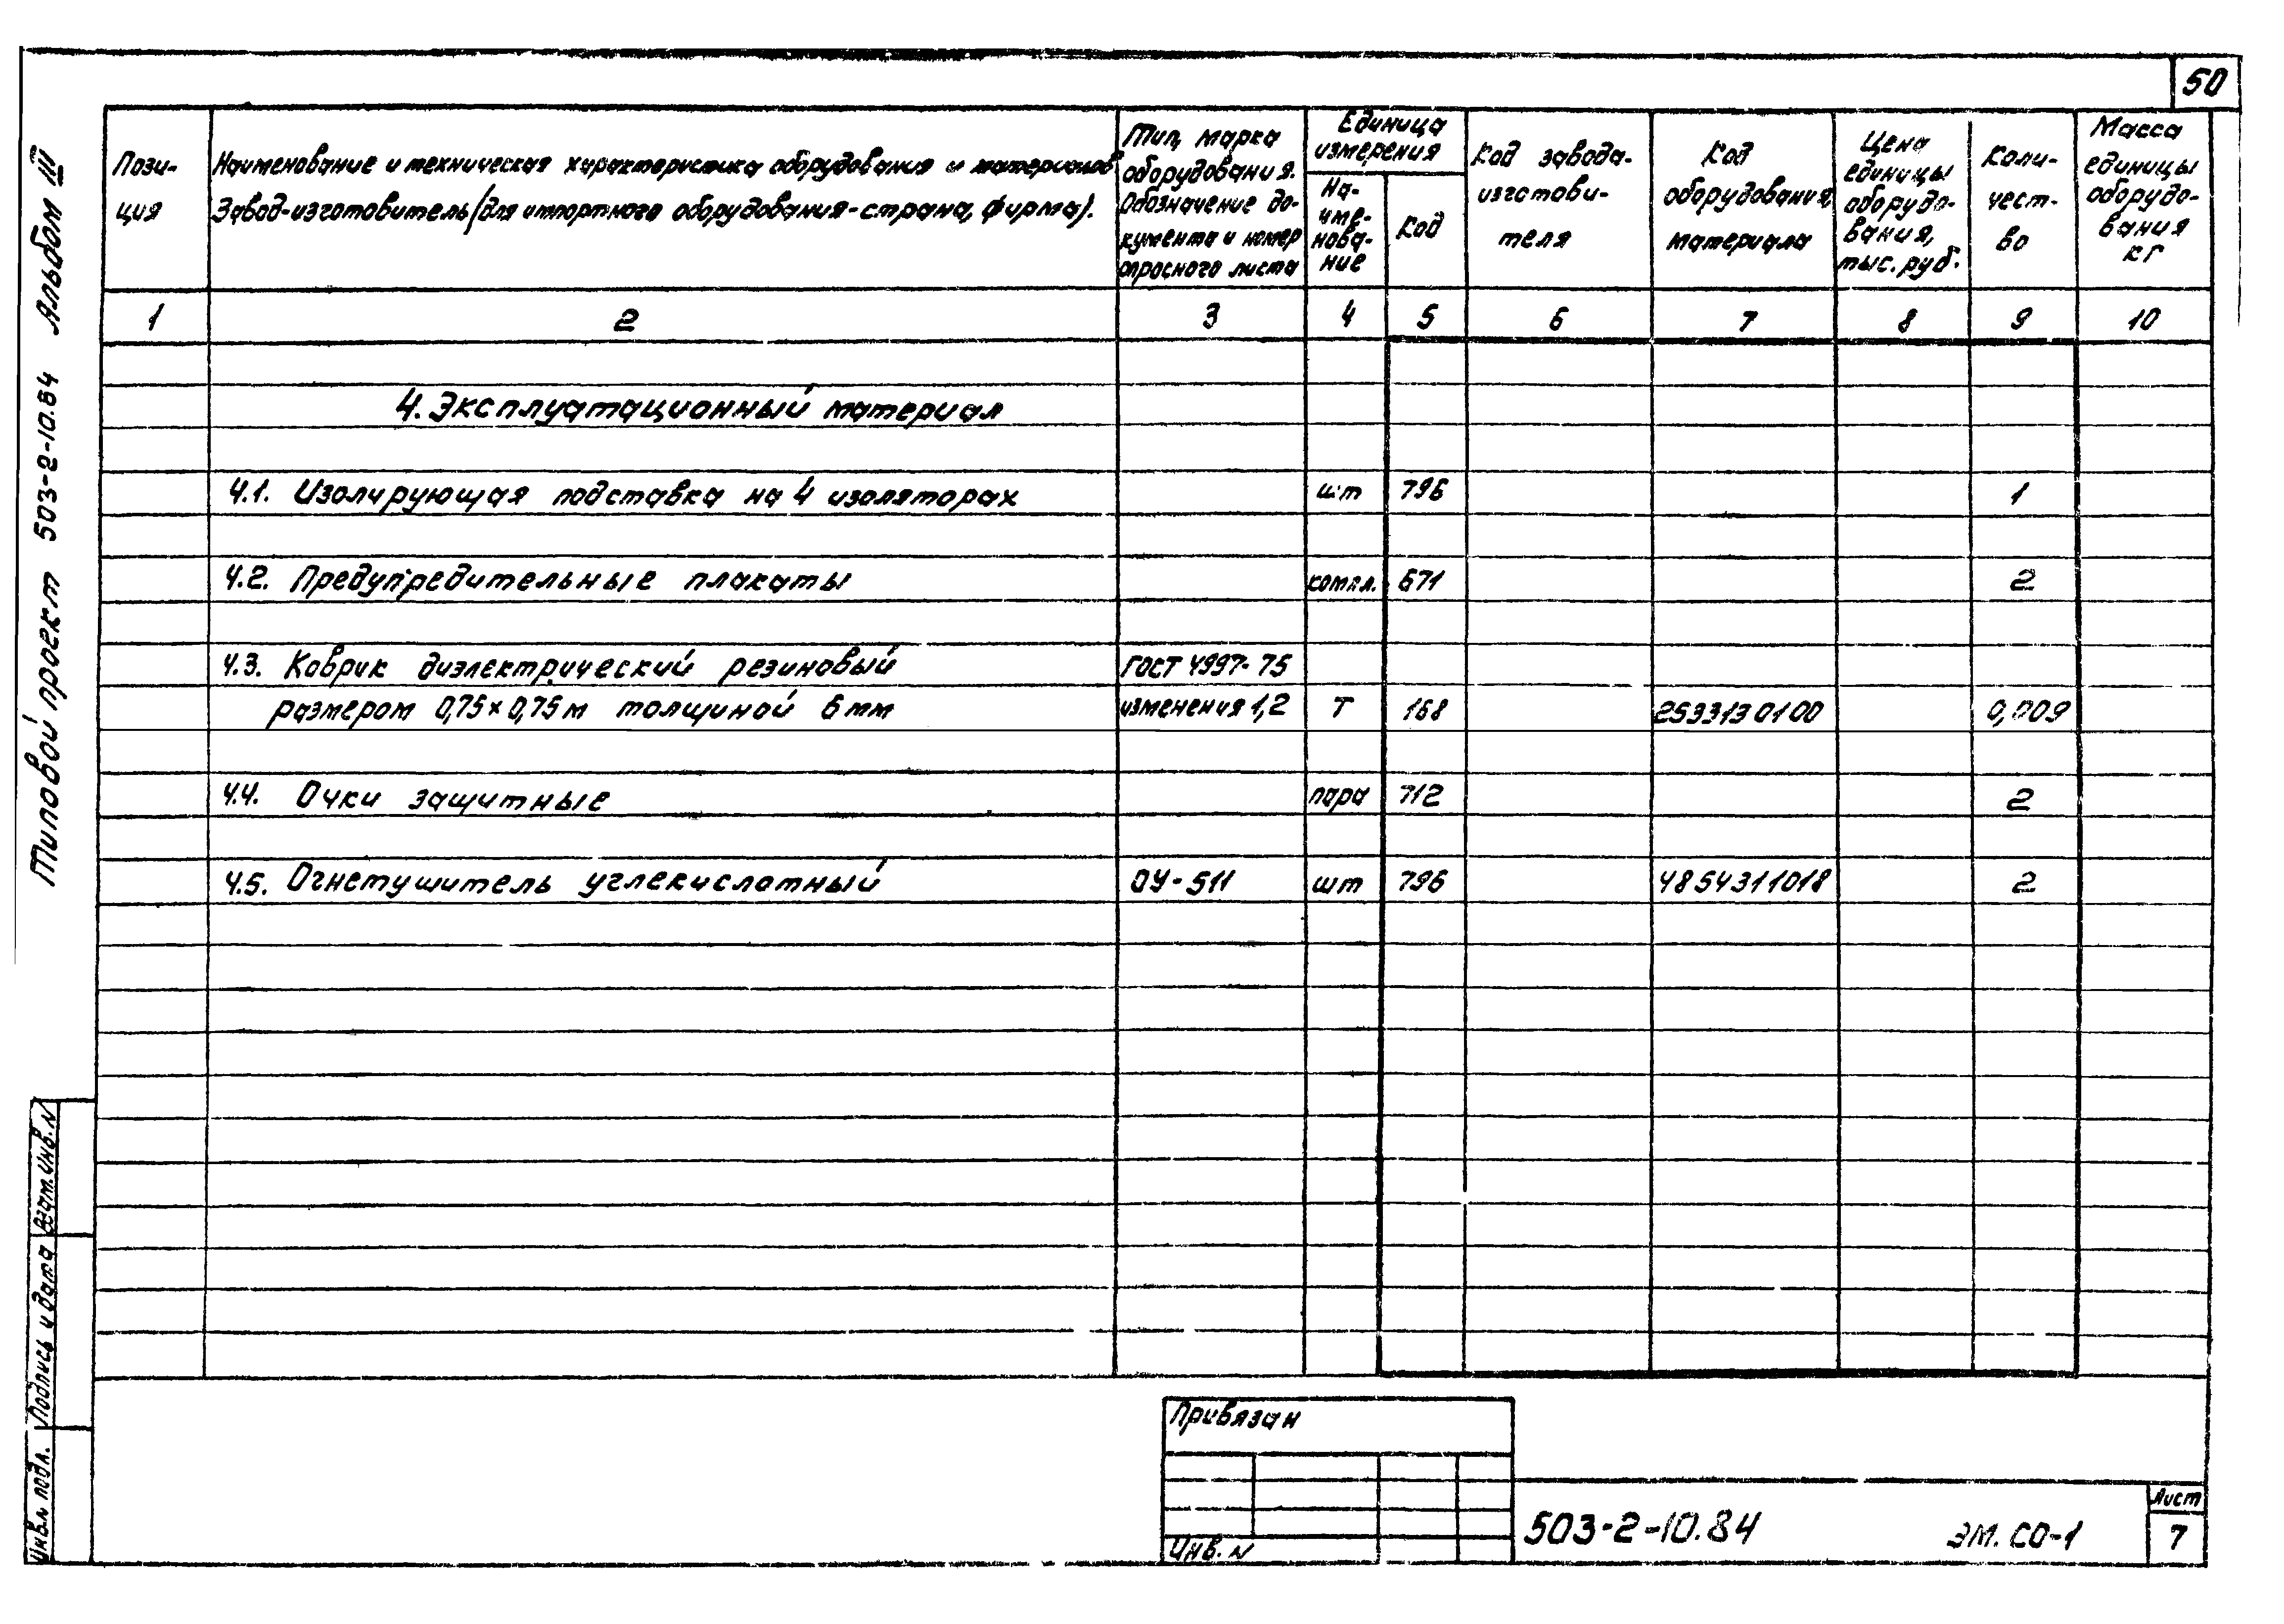 50
Типовой проект 503-2-10.84 Альбом III
Пози-
ция
Наименование и техническая характеристика оборудования и материалов
Завод-изготовитель (для импортного оборудования-страна, фирма).
Тип, марка
оборудования.
Обозначение до-
кумента и номер
опросного листа
Единица
измерения
На-
име-
нова-
ние
Код
Код завода-
изготови-
теля
Код
оборудования,
материала
Цена
единицы
оборудо-
вания,
тыс. руб.
Коли-
чест-
во
Масса
единицы
оборудо-
вания
кг
1 2 3 4 5 6 7 8 9 10
4. Эксплуатационный материал
4.1. Изолирующая подставка на 4 изоляторах шт 796 1
4.2. Предупредительные плакаты компл. 671 2
4.3. Коврик диэлектрический резиновый ГОСТ 4997-75
размером 0,75×0,75м толщиной 6мм изменения 1,2 Т 168 2533130100 0,009
4.4. Очки защитные пара 712 2
4.5. Огнетушитель углекислотный ОУ-511 шт 796 4854311018 2
Инв.N подл. Подпись и дата Взам.инв.N
Привязан
Инв. N
503-2-10.84 ЭМ.СО-1
Лист
7